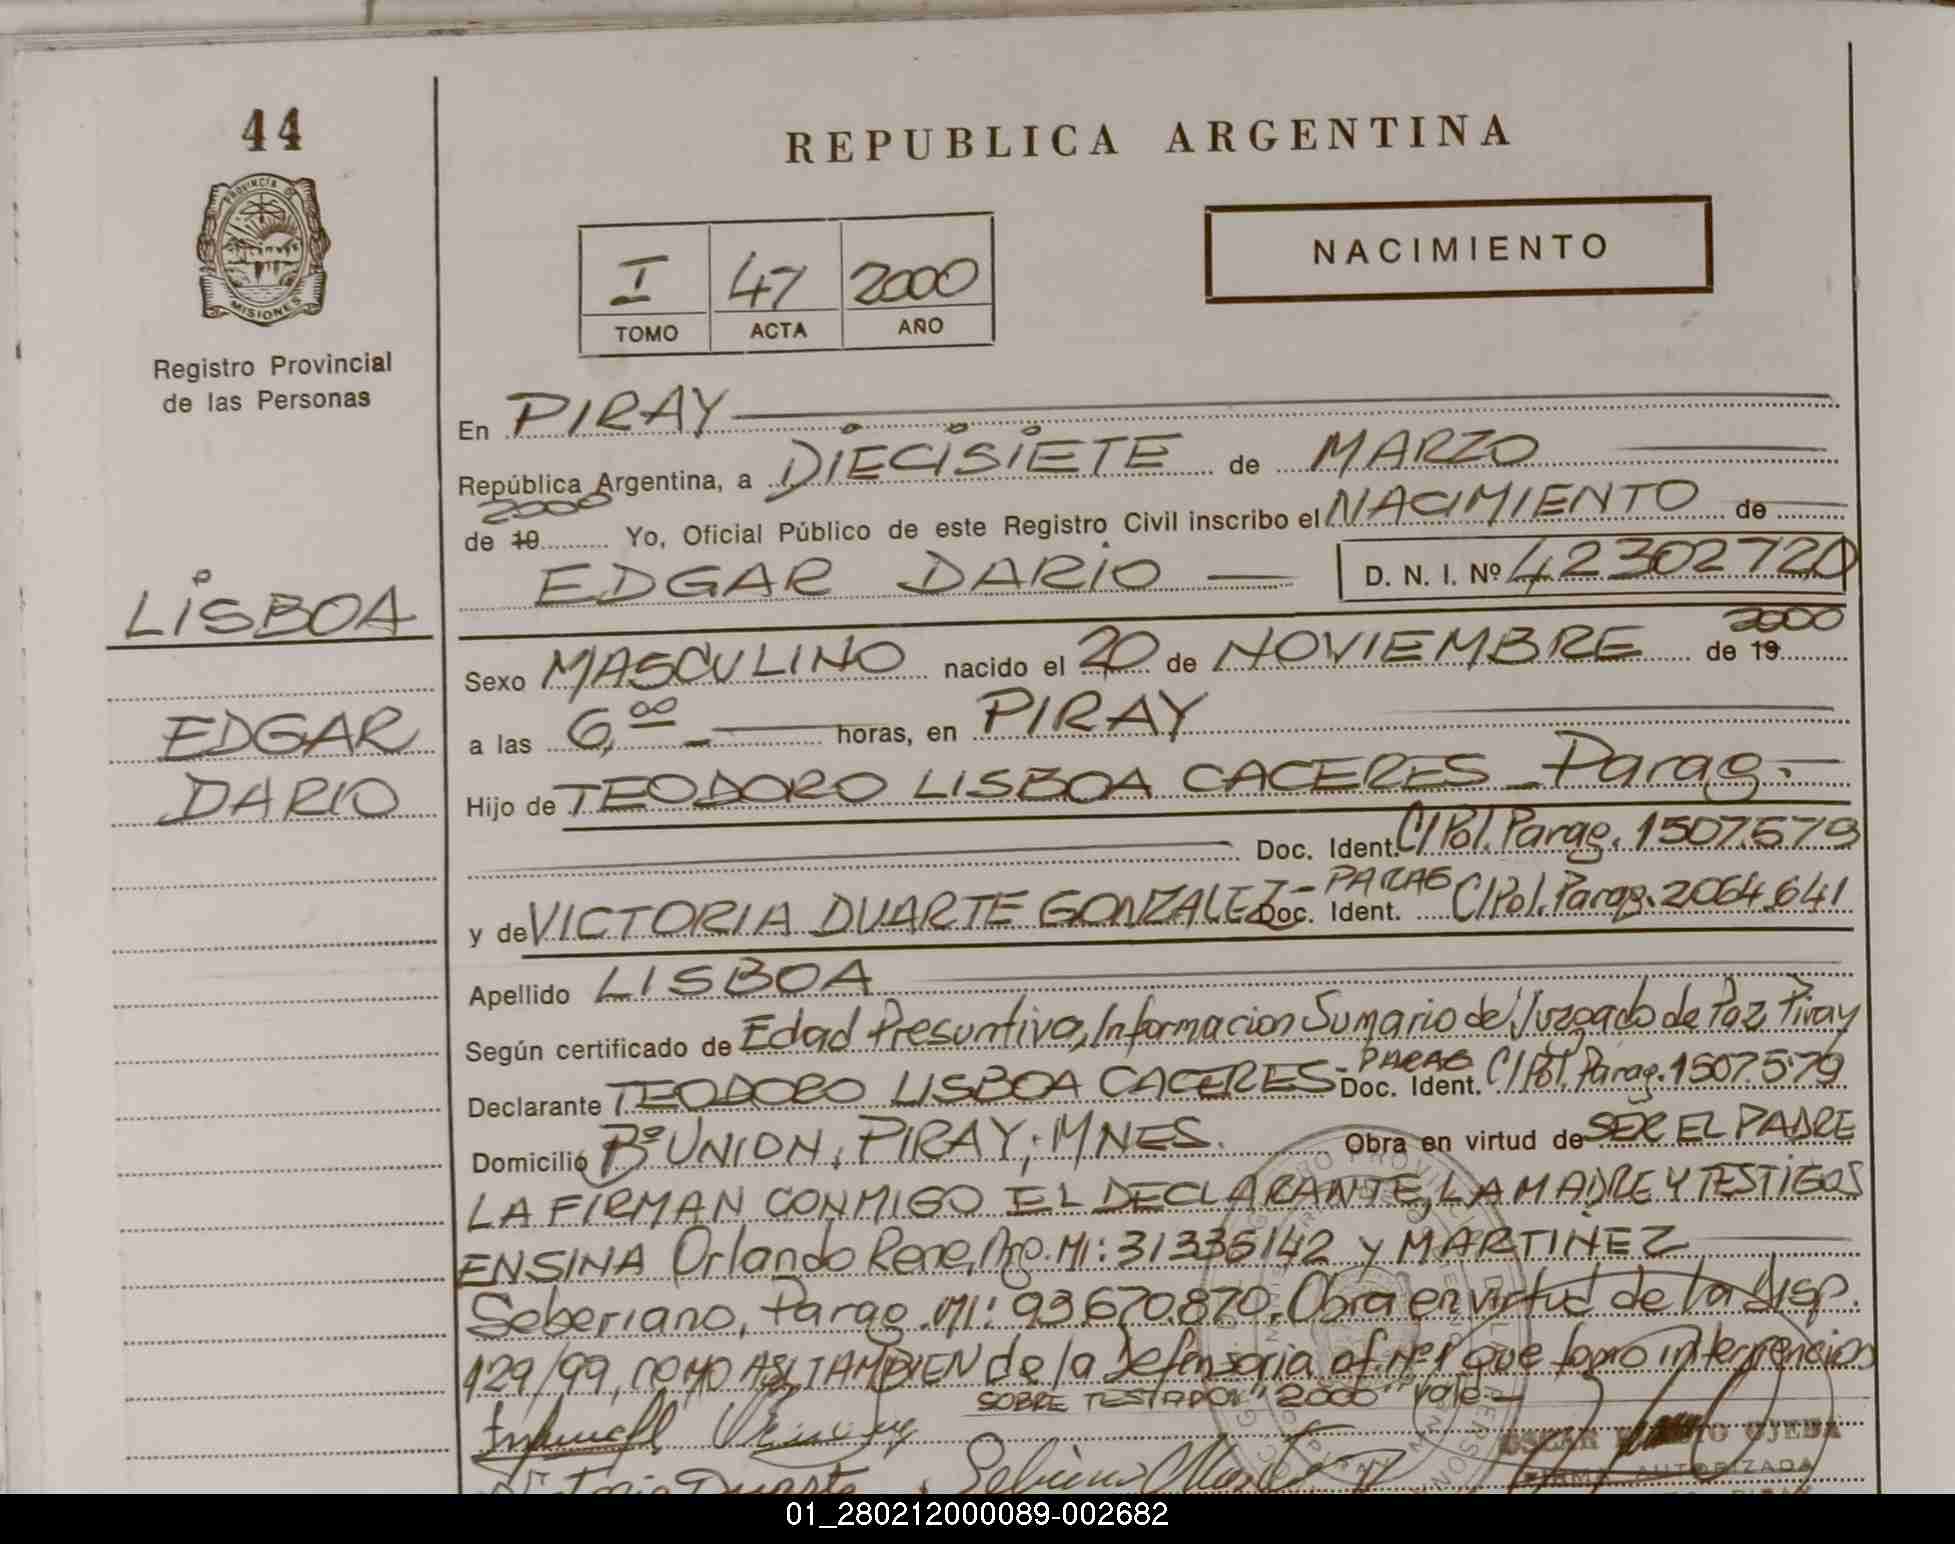 44
REPUBLICA ARGENTINA
PROVINCIA DE
MISIONES
Registro Provincial
de las Personas
I 47 2000
TOMO ACTA AÑO
NACIMIENTO
En PIRAY
República Argentina, a DIECISIETE de MARZO
2000
de 19 Yo, Oficial Público de este Registro Civil inscribo el NACIMIENTO de
EDGAR DARIO D. N. I. Nº 42302720
LISBOA
EDGAR
DARIO
2000
Sexo MASCULINO nacido el 20 de NOVIEMBRE de 19
a las 6,00 horas, en PIRAY
Hijo de TEODORO LISBOA CACERES - Parag.
Doc. Ident. C/Pol. Parag. 1507.579
y de VICTORIA DUARTE GONZALEZ - PARAG Doc. Ident. C/Pol. Parag. 2064.641
Apellido LISBOA
Según certificado de Edad Presuntiva, Informacion Sumario del Juzgado de Paz Piray
Declarante TEODORO LISBOA CACERES - PARAG Doc. Ident. C/Pol. Parag. 1507.579
Domicilio Bº UNION, PIRAY, MNES. Obra en virtud de SER EL PADRE
LA FIRMAN CONMIGO EL DECLARANTE, LA MADRE Y TESTIGOS
ENSINA Orlando Rene, Arg. MI: 31336142 y MARTINEZ
Seberiano, Parag. MI: 93.670.870. Obra en virtud de la Disp.
129/99, COMO ASI TAMBIEN de la Defensoria of. Nº 1 que tomo intervencion
SOBRE TESTADO: "2000" Vale -
OSCAR OJEDA
FIRMA AUTORIZADA
Victoria Duarte
01_280212000089-002682